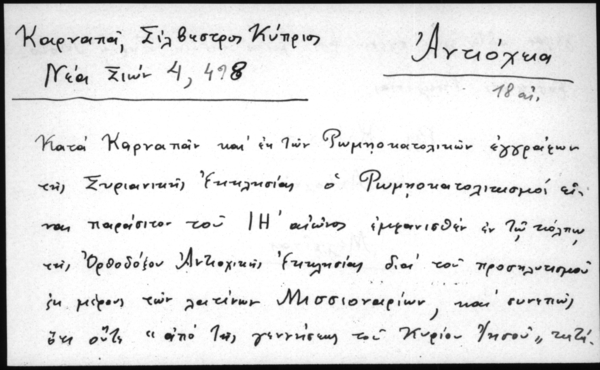 Καρναπᾶ, Σίλβεστρος Κύπριος
Νέα Σιών 4, 498
Ἀντιόχεια
18 αἰ.
Κατά Καρναπᾶν καί ἐκ τῶν Ρωμῃοκατολικῶν ἐγγράφων
τῆς Συριανικῆς Ἐκκλησίας ὁ Ρωμῃοκατολικισμός εἶ-
ναι παράσιτον τοῦ ΙΗ' αἰῶνος ἐμφανισθέν ἐν τῷ κόλπῳ
τῆς Ὀρθοδόξου Ἀντιοχικῆς Ἐκκλησίας διά τοῦ προσηλυτισμοῦ
ἐκ μέρους τῶν λατίνων Μισσιοναρίων, καί συνεπῶς
ὄχι οὔτε "ἀπό τῆς γεννήσεως τοῦ Κυρίου Ἰησοῦ"